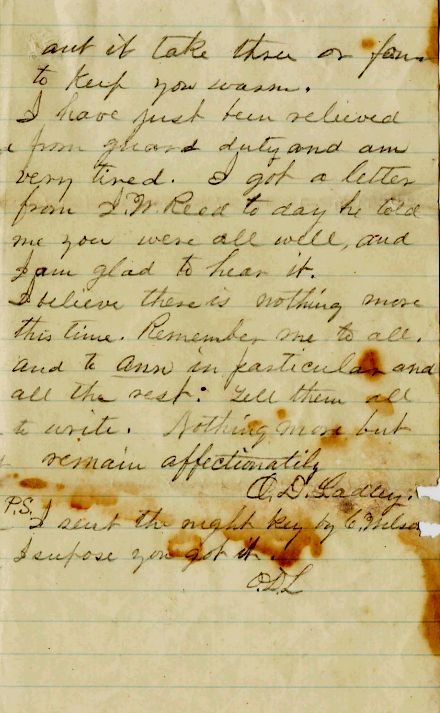 aut it take three or four
to keep you warm.
I have just been relieved
from guard duty and am
very tired. I got a letter
from I. W. Reed to day he told
me you were all well, and
I am glad to hear it.
I believe there is nothing more
this time. Remember me to all.
and to Ann in particular and
all the rest: Tell them all
to write. Nothing more but
remain affectionatily
O. D. Ladley.
P.S.
I sent the night key by C. Nelson
I supose you got it.
ODL